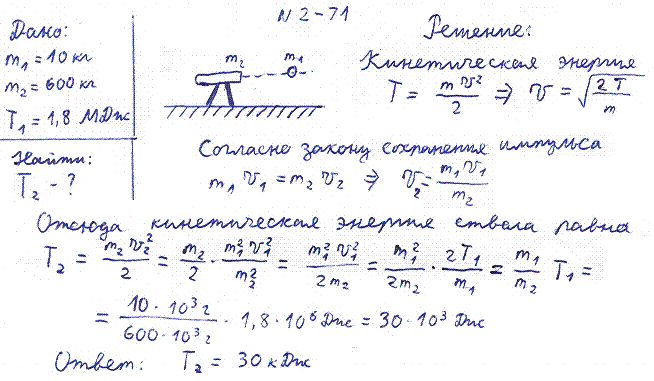 N 2-71
Дано:
m₁ = 10 кг
m₂ = 600 кг
T₁ = 1,8 МДж
Найти:
T₂ - ?
m₂ m₁
Решение:
Кинетическая энергия
T = mv²/2 ⇒ v = √(2T/m)
Согласно закону сохранения импульса
m₁v₁ = m₂v₂ ⇒ v₂ = m₁v₁/m₂
Отсюда кинетическая энергия ствола равна
T₂ = m₂v₂²/2 = m₂/2 · m₁²v₁²/m₂² = m₁²v₁²/2m₂ = m₁²/2m₂ · 2T₁/m₁ = m₁/m₂ T₁ =
= 10 · 10³ г/600 · 10³ г · 1,8 · 10⁶ Дж = 30 · 10³ Дж
Ответ: T₂ = 30 кДж